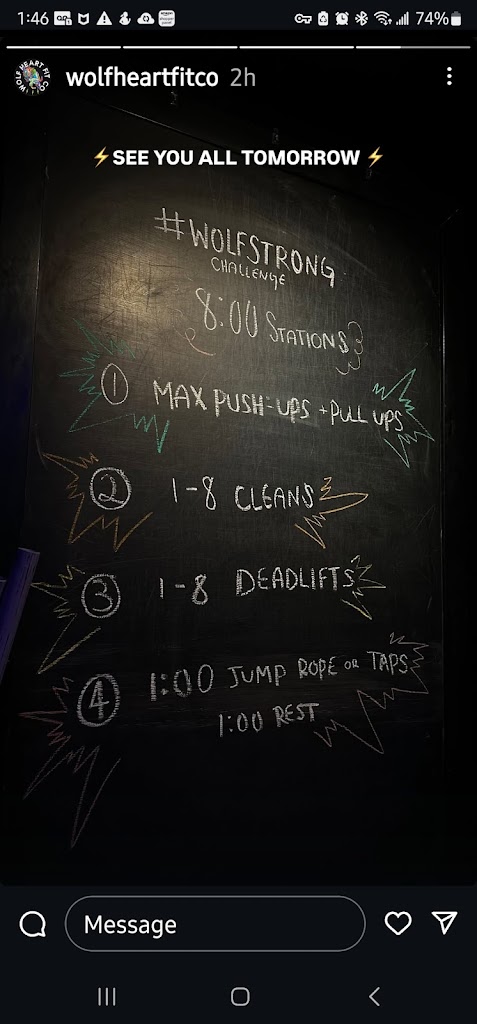 1:46
74%
WOLF HEART FIT CO
wolfheartfitco 2h
⚡SEE YOU ALL TOMORROW ⚡
#WOLFSTRONG
CHALLENGE
8:00 STATIONS
1 MAX PUSH-UPS + PULL UPS
2 1-8 CLEANS
3 1-8 DEADLIFTS
4 1:00 JUMP ROPE OR TAPS
1:00 REST
Message